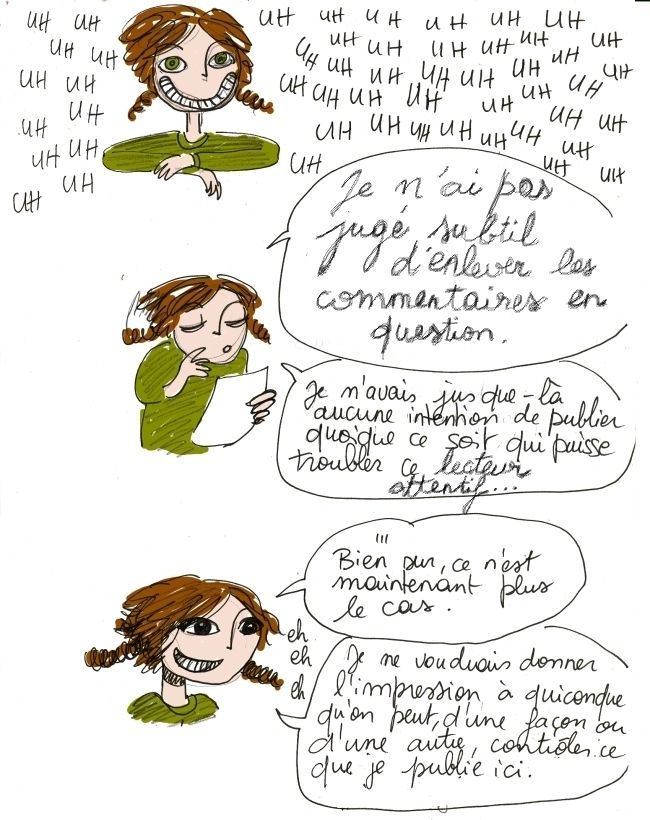 UH UH UH UH UH UH UH UH UH
UH UH UH UH UH UH UH UH UH
UH UH UH UH UH UH UH UH UH
UH UH UH UH UH UH UH UH
UH UH UH UH UH UH UH UH UH
UH UH UH UH UH
UH UH UH
Je n'ai pas
jugé subtil
d'enlever les
commentaires en
question.
Je n'avais jusque-là
aucune intention de publier
quoique ce soit qui puisse
troubler ce lecteur
attentif...
Bien sur, ce n'est
maintenant plus
le cas.
eh
eh
eh
Je ne voudrais donner
l'impression à quiconque
qu'on peut, d'une façon ou
d'une autre, contrôler ce
que je publie ici.